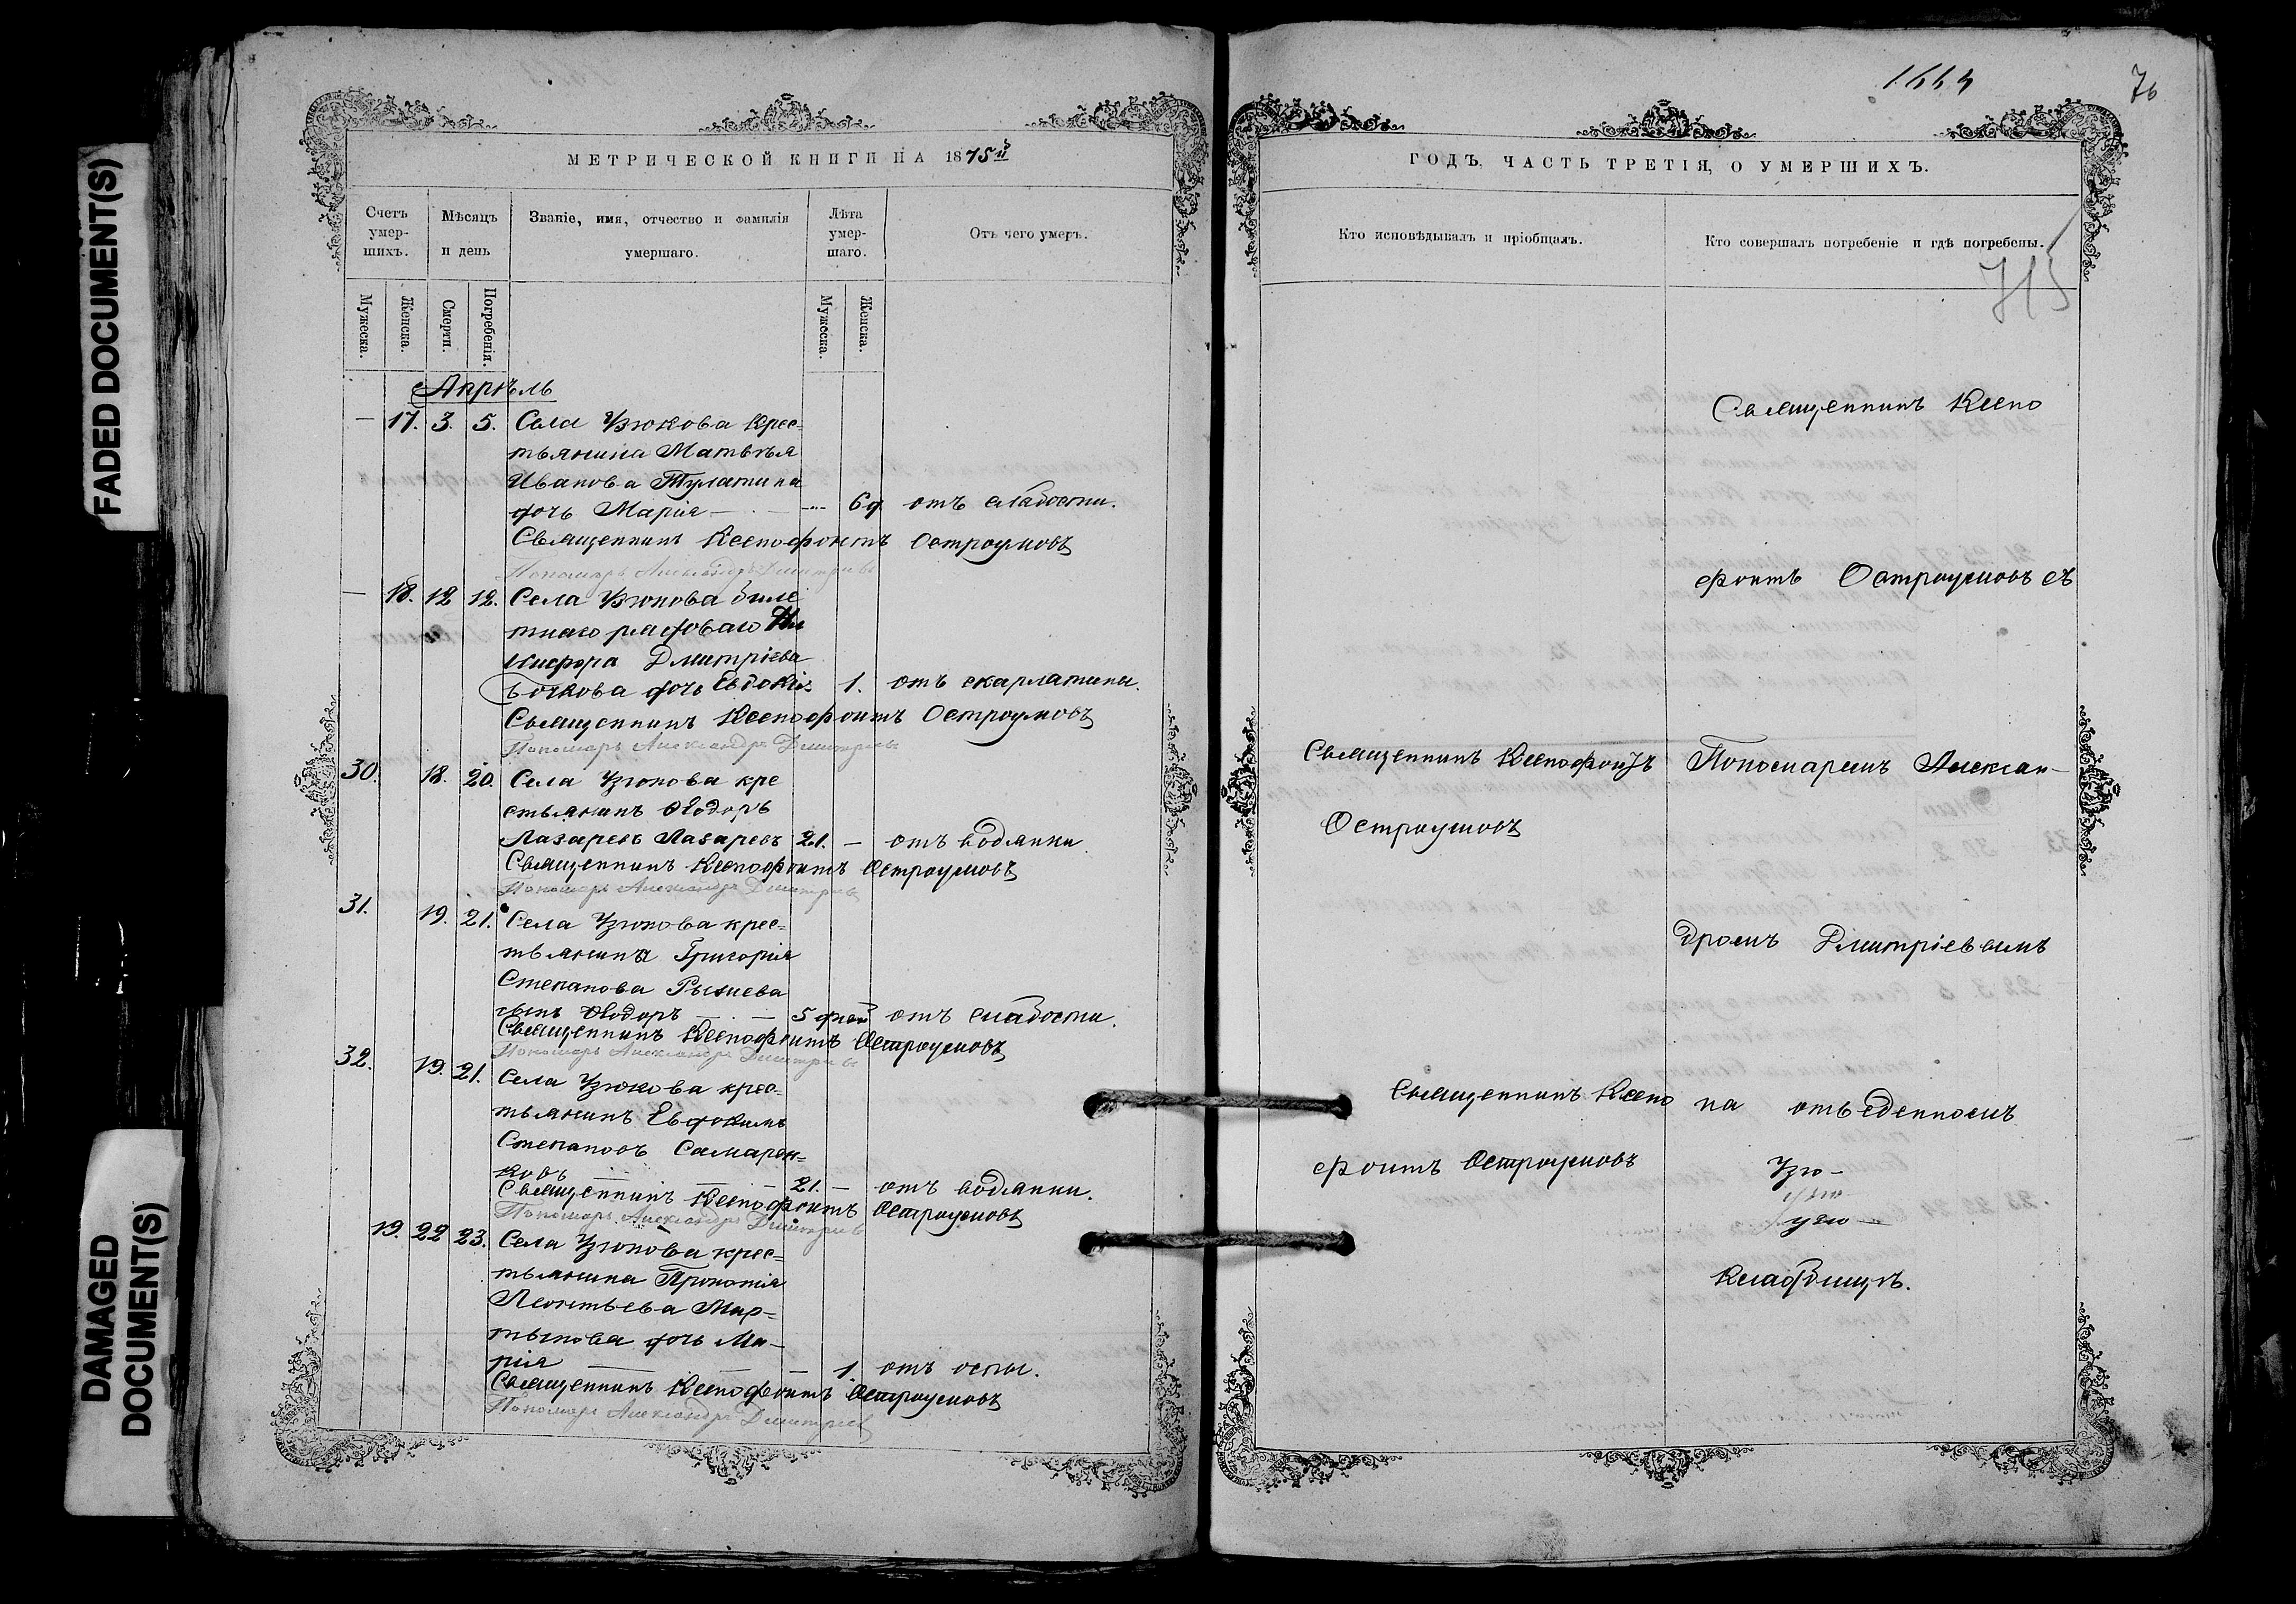 FADED DOCUMENT(S)
DAMAGED
DOCUMENT(S)
МЕТРИЧЕСКОЙ КНИГИ НА 1875й
Счетъ умер-шихъ.
Мѣсяцъ и день
Званіе, имя, отчество и фамилія умершаго.
Лѣта умер-шаго.
Отъ чего умеръ.
Мужеска.
Женска.
Смерти.
Погребенія.
Мужеска.
Женска.
Апрѣль
— 17. 3. 5. Села Узюкова крес-
тьянина Матвѣя
Иванова Тулатина
дочь Марія — 6д отъ слабости.
Священникъ Ксенофонтъ Остроумовъ
Пономарь Александръ Дмитріевъ
— 18. 12 12. Села Узюкова биле
тнаго рядоваго Ни
кифора Дмитріева
Бочкова дочь Евдокія 1. отъ скарлатины.
Священникъ Ксенофонтъ Остроумовъ
Пономарь Александръ Дмитріевъ
30. 18. 20. Села Узюкова кре
стьянинъ Ѳеодоръ
Лазаревъ Лазаревъ 21. — отъ водянки
Священникъ Ксенофонтъ Остроумовъ
Пономарь Александръ Дмитріевъ
31. 19. 21. Села Узюкова крес-
тьянина Григорія
Степанова
сынъ Ѳеодоръ — 5 дней отъ слабости.
Священникъ Ксенофонтъ Остроумовъ
Пономарь Александръ Дмитріевъ
32. 19. 21. Села Узюкова крес-
тьянинъ Евдокимъ
Степановъ
— 21. — отъ водянки.
Священникъ Ксенофонтъ Остроумовъ
Пономарь Александръ Дмитріевъ
19. 22 23. Села Узюкова крес-
тьянина Прокопія
Леонтьева Мар-
тынова дочь Ма-
рія — — 1. отъ оспы.
Священникъ Ксенофонтъ Остроумовъ
Пономарь Александръ Дмитріев
76
ГОДЪ, ЧАСТЬ ТРЕТІЯ, О УМЕРШИХЪ.
Кто исповѣдывалъ и пріобщалъ.
Кто совершалъ погребеніе и гдѣ погребены.
Священникъ Ксено
фонтъ Остроумовъ съ
Священникъ Ксенофонтъ
Остроумовъ
Пономаремъ Алексан-
дромъ Дмитріевымъ
Священникъ Ксено
фонтъ Остроумовъ
на отведенномъ
Узю-
кладбищѣ.